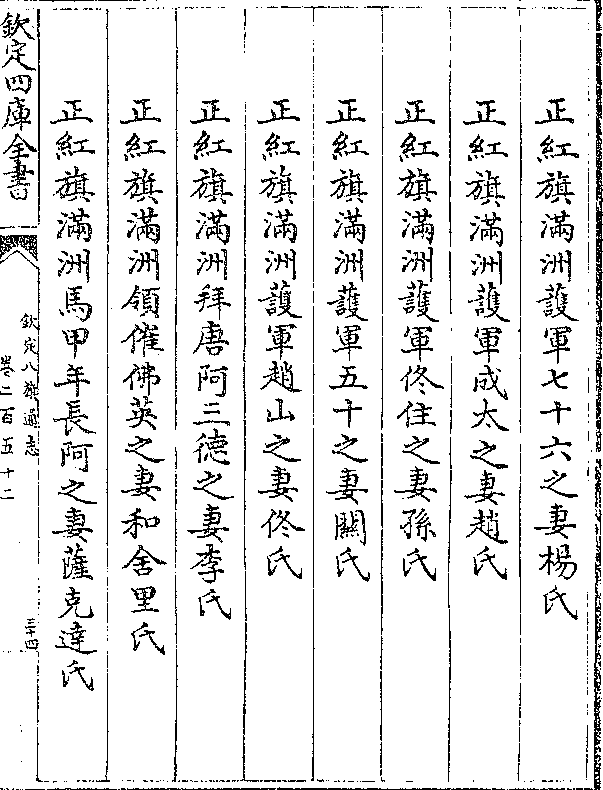 正紅旗滿洲護軍七十六之妻楊氏
正紅旗滿洲護軍成太之妻趙氏
正紅旗滿洲護軍佟住之妻孫氏
正紅旗滿洲護軍五十之妻關氏
正紅旗滿洲護軍趙山之妻佟氏
正紅旗滿洲拜唐阿三德之妻李氏
正紅旗滿洲領催佛英之妻和舍里氏
正紅旗滿洲馬甲年長阿之妻薩克達氏
欽定四庫全書
欽定八旗通志
卷二百五十二
三十四